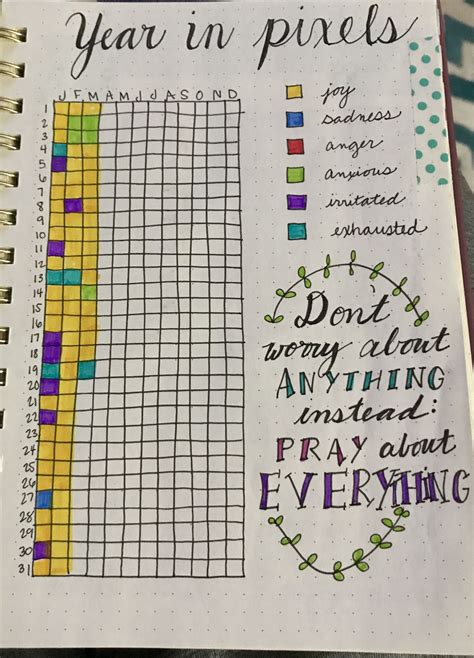 Year in pixels
J F M A M J J A S O N D
1
2
3
4
5
6
7
8
9
10
11
12
13
14
15
16
17
18
19
20
21
22
23
24
25
26
27
28
29
30
31
joy
sadness
anger
anxious
irritated
exhausted
Don't
worry about
ANYTHING
instead:
PRAY about
EVERYTHING